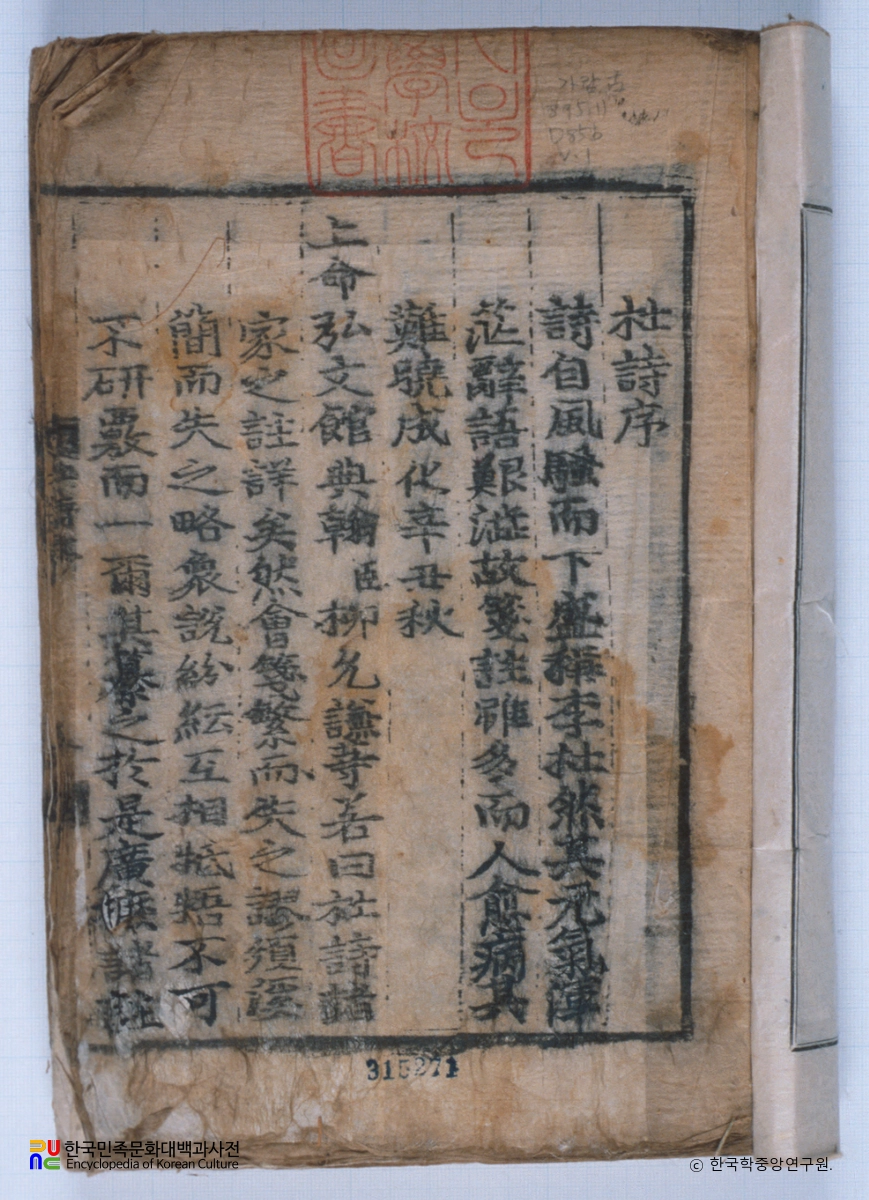 杜詩序
詩自風騷而下盛稱李杜然其元氣渾
茫辭語艱澁故箋註雖多而人愈病其
難曉成化辛丑秋
上命弘文館典翰臣柳允謙等若曰杜詩諸
家之註詳矣然會箋繁而失之謬須溪
簡而失之略衆說紛紜互相牴牾不可
不硏覈而一爾其纂之於是廣摭諸註
315271
한국민족문화대백과사전
Encyclopedia of Korean Culture
© 한국학중앙연구원.